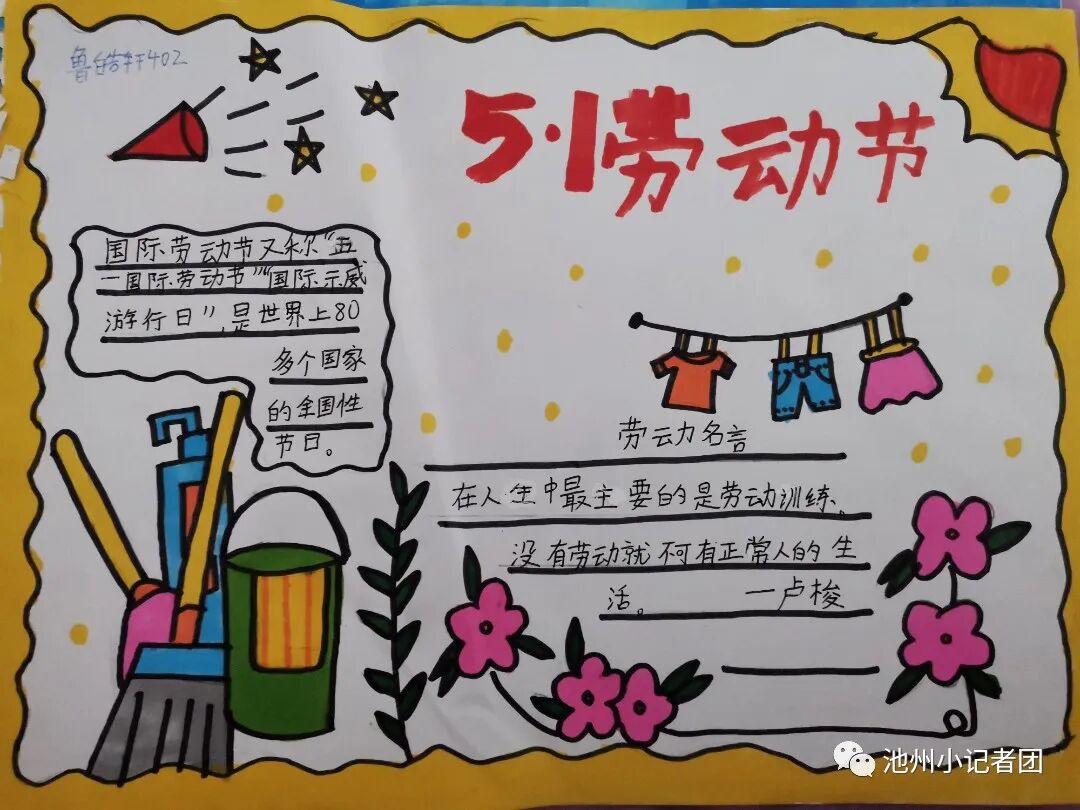 鲁皓轩402
5·1劳动节
国际劳动节又称“五
一国际劳动节”“国际示威
游行日”,是世界上80
多个国家
的全国性
节日。
劳动名言
在人生中最主要的是劳动训练。
没有劳动就不可有正常人的生
活。 一卢梭
池州小记者团